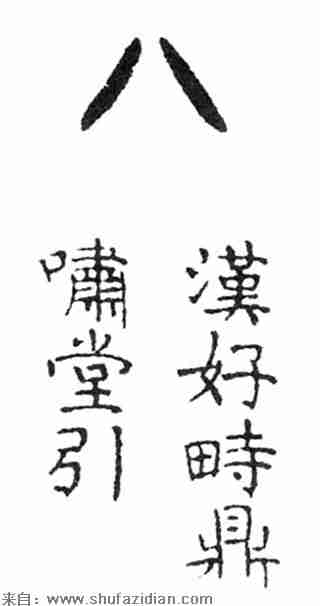 八
漢好畤鼎
嘯堂引
来自：www.shufazidian.com